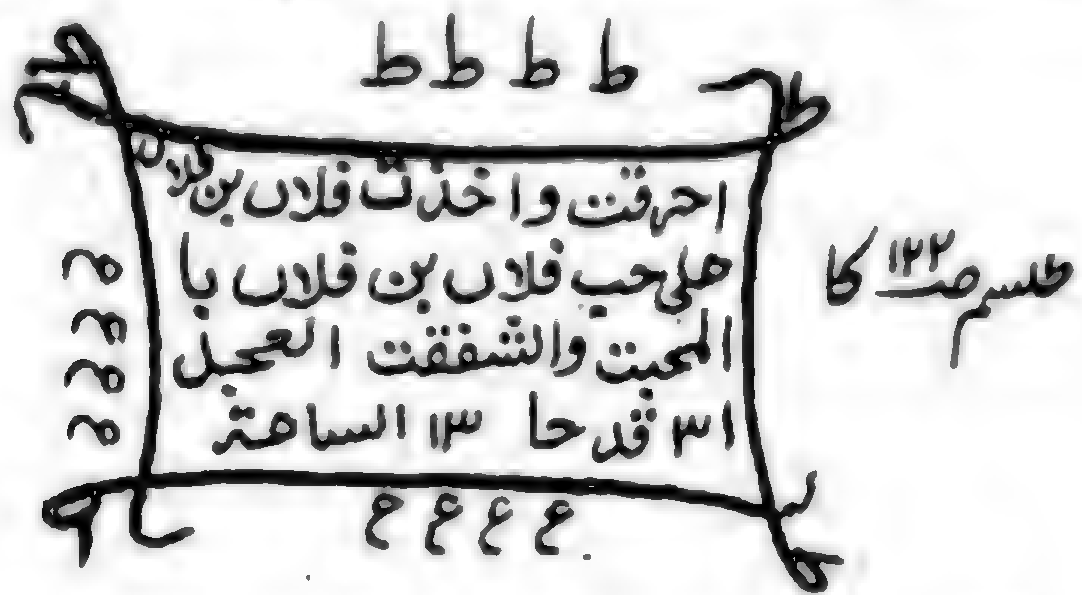 ط ط ط ط
احرقت واخذت فلاں بن فلاں
علی حب فلاں بن فلاں با
المحبت والشفقت العجل
۱۳ قدحا ۱۳ الساعتہ
ع ع ع ع
طلسم صـ۱۲۲ کا